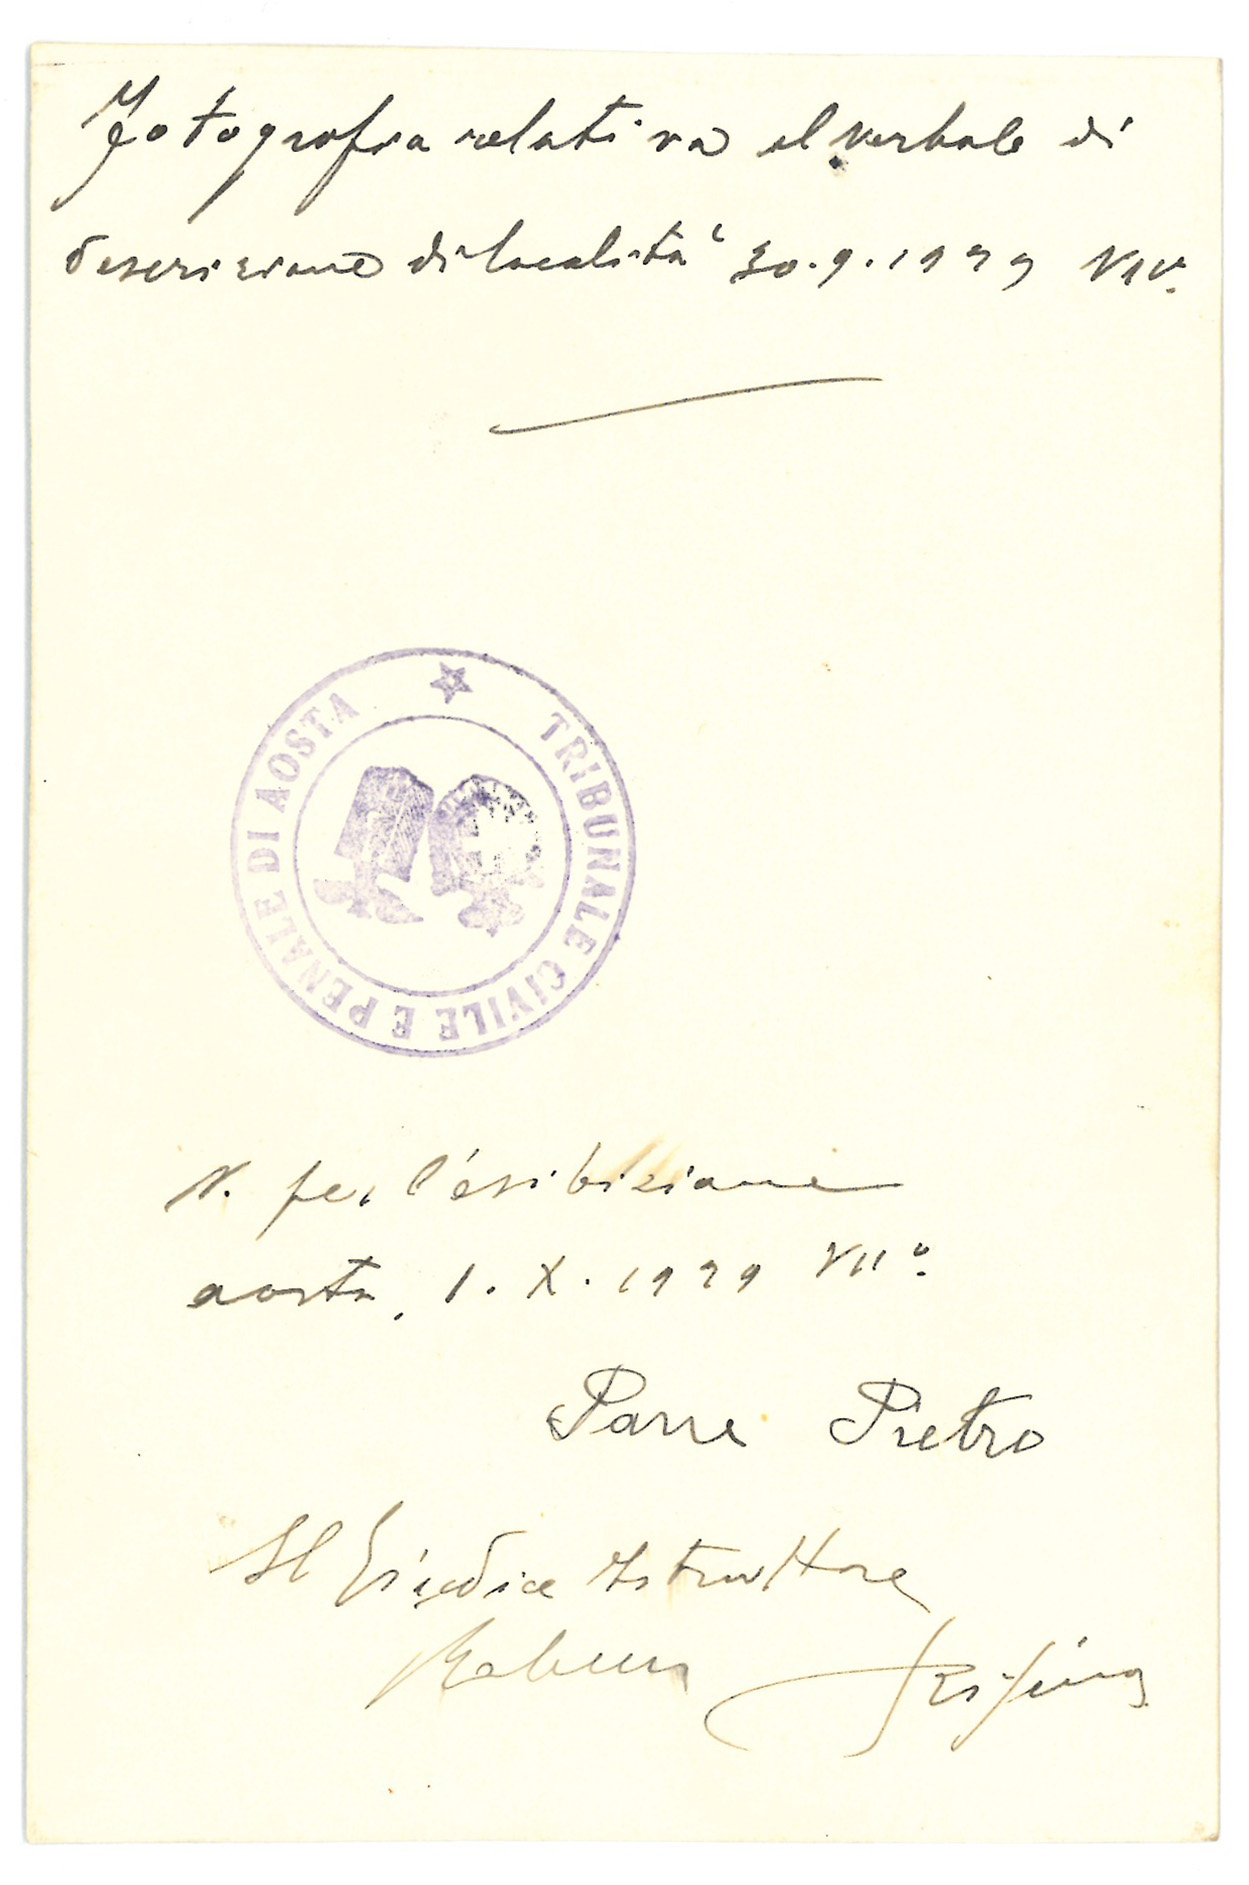 Fotografia relativa al verbale di
descrizione di località 30.9.1929 VIIº.
TRIBUNALE CIVILE E PENALE DI AOSTA
V. per l'esibizione
Aosta, 1. X. 1929 VIIº.
Pietro
Il Giudice Istruttore